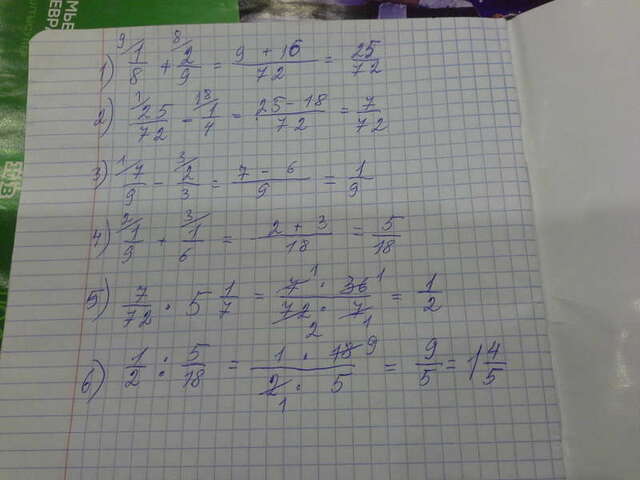 МЬЕ
ЕВРА
1) 9/1/8 + 8/2/9 = 9 + 16/72 = 25/72
2) 1/25/72 - 18/1/4 = 25 - 18/72 = 7/72
3) 1/7/9 - 3/2/3 = 7 - 6/9 = 1/9
4) 2/1/9 + 3/1/6 = 2 + 3/18 = 5/18
5) 7/72 · 5 1/7 = 7 1 · 36 1/72 2 · 7 1 = 1/2
6) 1/2 : 5/18 = 1 · 18 9/2 1 · 5 = 9/5 = 1 4/5